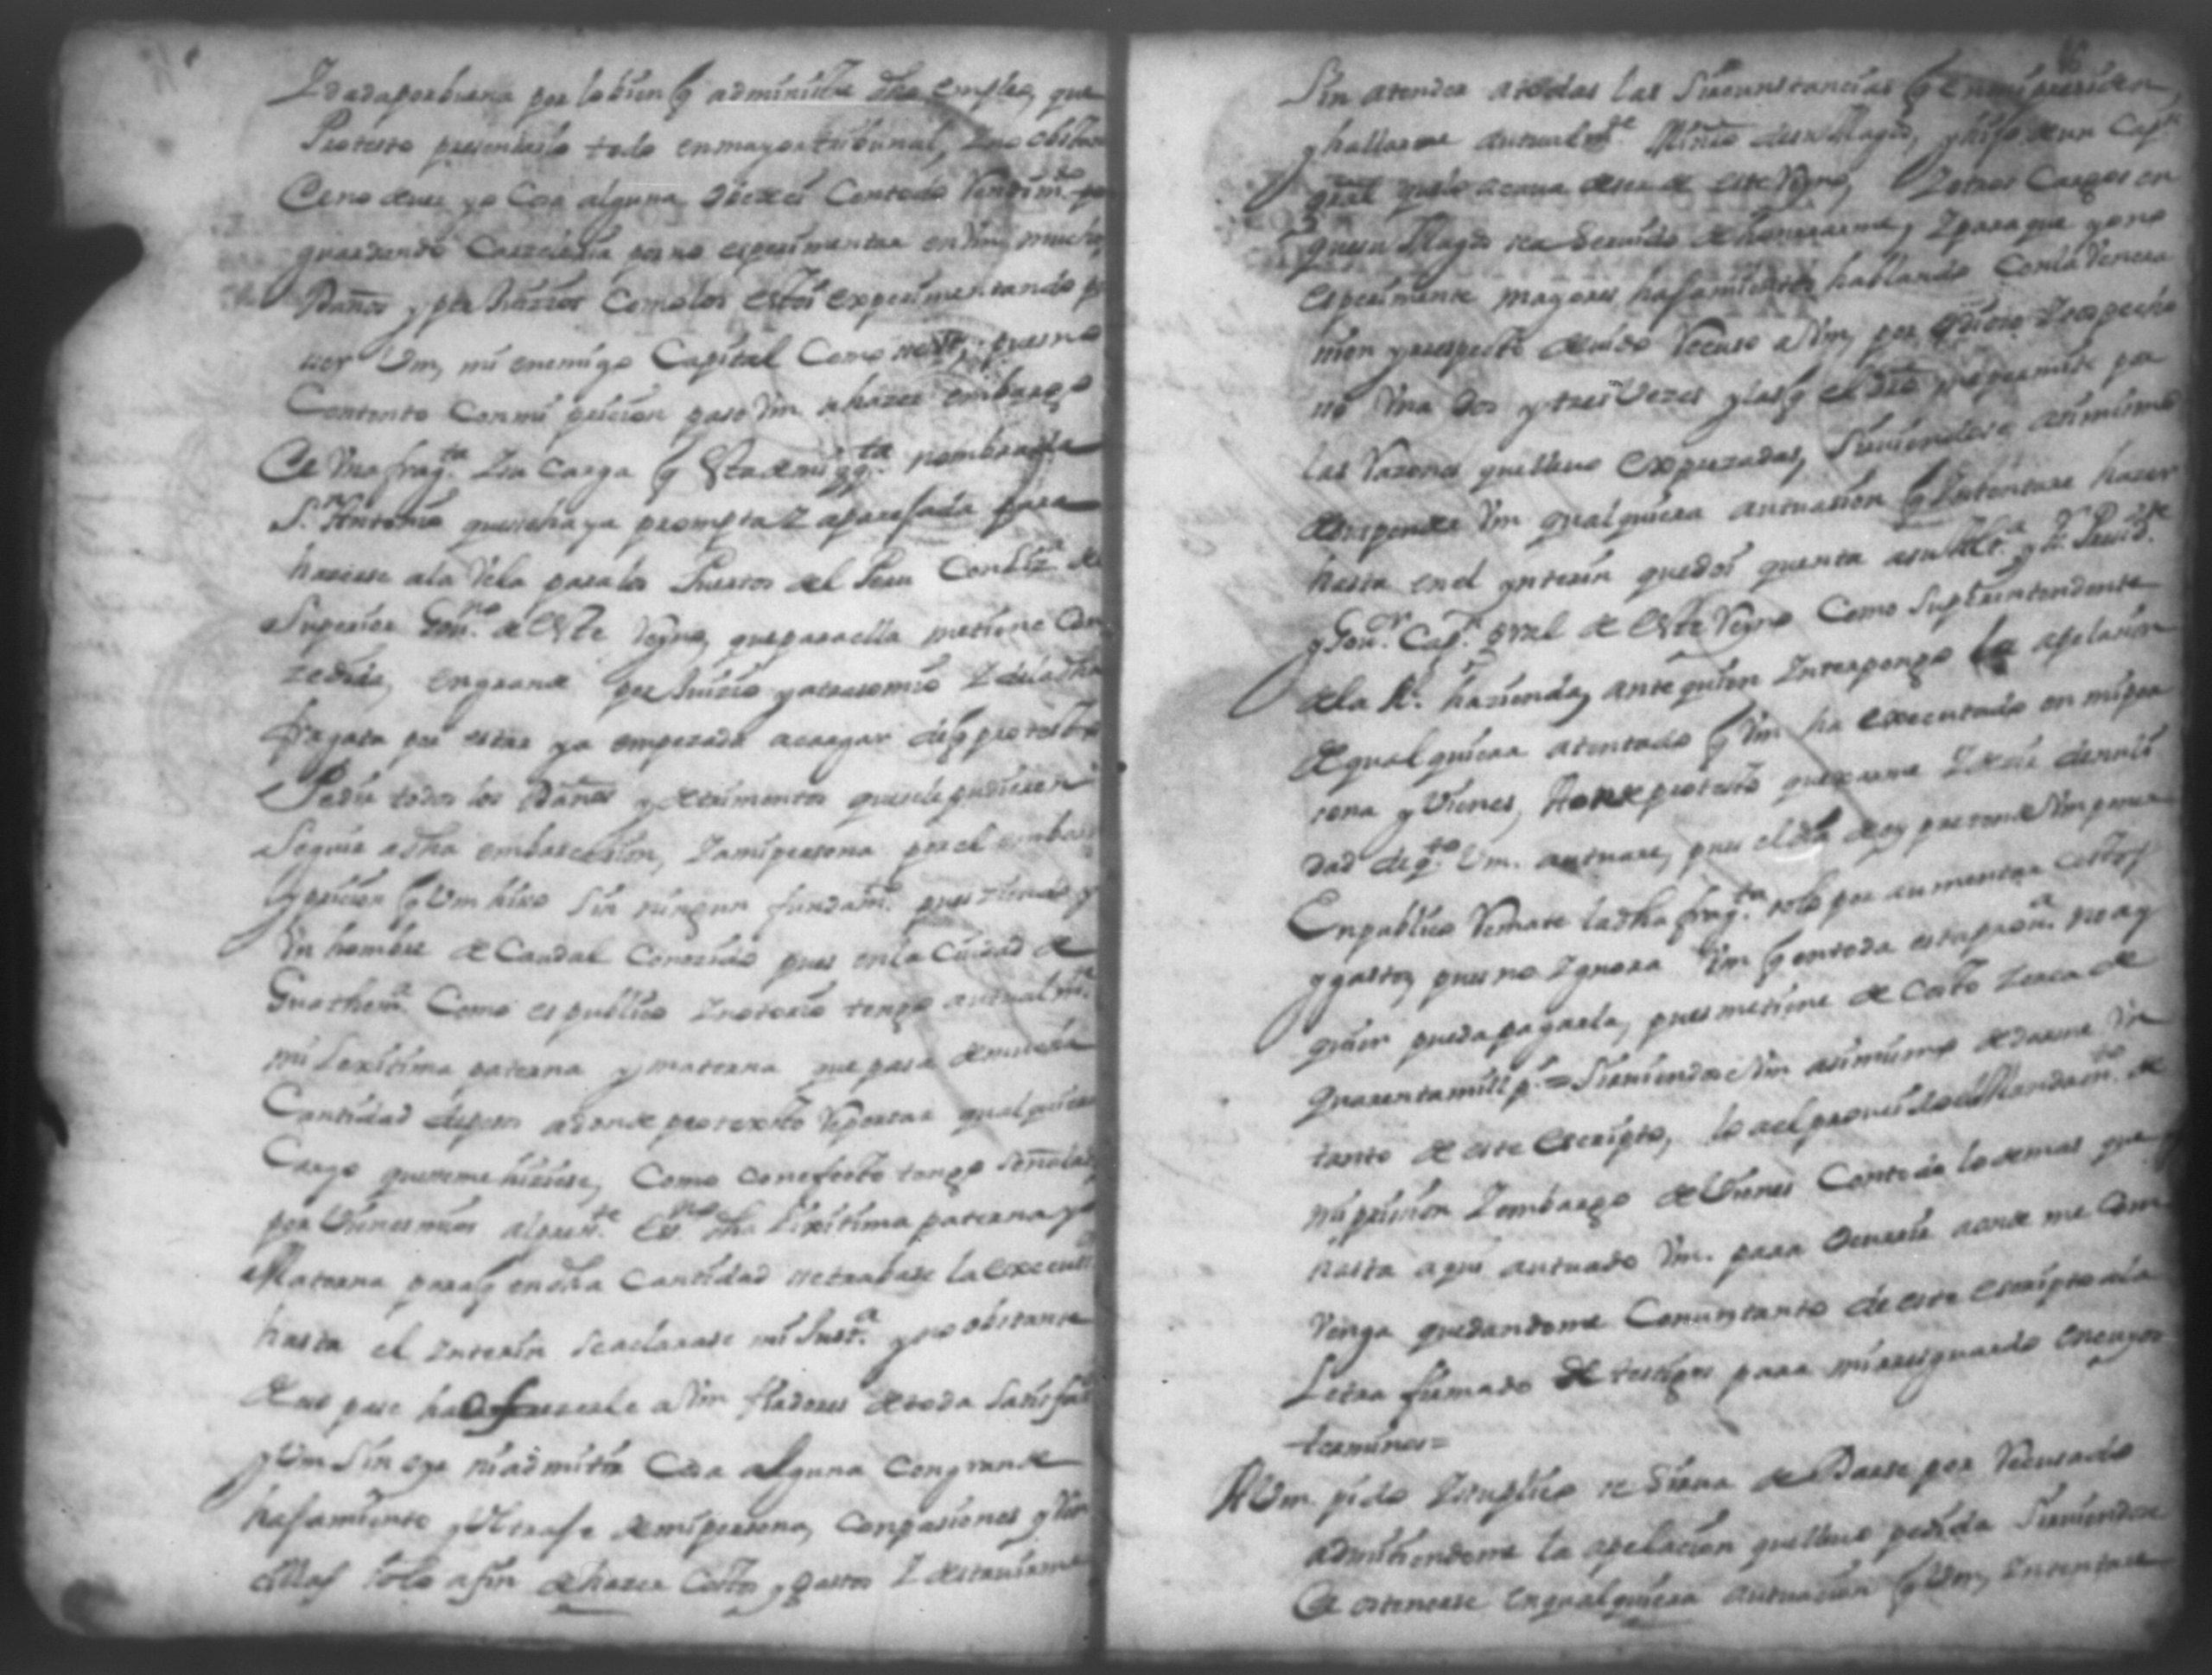 Y dada por buena por lo bien q administre dho empleo, que
Protesto presentarlo todo en mayor tribunal, y no obstan
Ce no dever yo Cosa alguna obedesi Contodo Rendim.to
guardando Carzeleria por no esperimentar en Vm, mucho
Daños y perjuizios Como los estoi experimentando p
ser Vm, mi enemigo Capital Como pues no
Contento Con mi pricion paso Vm a hazer embargo
De Vna frag.ta Y su carga q Esta de mi q.ta nombrada
S.n Antonio que se halla prompta Y aparejada para
hacerse a la Vela para los Puertos del Peru Con Liz.a de
Superior Gov.no de Este Reyno, que para ella me tiene Con
zedida, en grande perjuizio y atraso mio Y de la dha
fragata por estar ya empezada a cargar de q protesto
Pedir todos los Daños y detrimentos que se le pudieren
Seguir a dha embarcasion, Y a mi persona por el embar
y pricion q Vm hizo Sin ningun fundam.to pues siendo yo
Vn hombre de Caudal Conozido pues en la Ciudad de
Guathem.a Como es publico Y notorio tengo actualm.te
mi Lexitima paterna y materna que pasa de mucha
Cantidad de pesos a donde protexto Reportar qualquiera
Cargo que se me hiziese, Como con efecto tengo señalado
por Vienes mios al pres.te Es.no dha Lixitima paterna y
Materna para q en dha Cantidad se trabase la execus.n
hasta el Ynterin Se aclarase mi Just.a y no obstante
de eso pase ha ofrezerle a Vm fiadores de toda Satisfas
y Vm Sin oyr ni admitir Cosa alguna Con grande
hajamiento y Vltraje de mi persona, Con pasiones y
solo a fin de hazer Costos y gastos Y destruirme
Sin atender a todas las Sircunstancias q en mi presiden,
y hallarme actualm.te Min.o de su Mag.d, y hijo de un Cap.n
gral que lo acava de ser de este Reyno, Y otros Cargos en
que su Mag.d sea Servido de honrarme, Y para que yo no
esperimente mayores hajamientos hablando Con la Venera
sion y respecto devido Recuso a Vm, por Odioso Y sospecho
so Vna dos y tres Vezes y las q el dro me permite por
las Razones que llevo Exprezadas, Sirviendose asimismo
de suspender Vm qualquiera actuasion q Yntentare hazer
hasta en el ynterin que doi quenta a su Mag.d y S.r Presid.te
y Gov.r Cap.n gral de Este Reyno Como Superintendente
de la R.l hazienda, ante quien Ynterpongo la apelasion
de qualquiera atentado q Vm ha executado en mi per
sona y Vienes, donde protesto quexarme Y desir de nuli
dad de q.to Vm. actuare, pues el dia de oy pretende Vm poner
En publico Remate la dha frag.ta solo por aumentar costos
y gastos, pues no Ygnora Vm q en toda esta prov.a no ay
quien pueda pagarla, pues me tiene de Costo Zerca de
quarenta mill p.s = Sirviendose Vm. asimismo de darme Vn
tanto de este Escripto, lo a el proveido del Mandam.to de
mi pricion Y embargo de Vienes Con todo lo demas que
hasta aqui actuado Vm. para Ocurrir a onde me Con
venga quedandome Con un tanto de este escripto a la
Letra firmado de testigos para mi resguardo en cuyos
terminos =
A Vm. pido Y suplico se Sirva de Darse por Recusado
admitiendome la apelacion que llevo pedida Sirviendose
De abstenerse en qualquiera actuacion q Vm, Yntentare